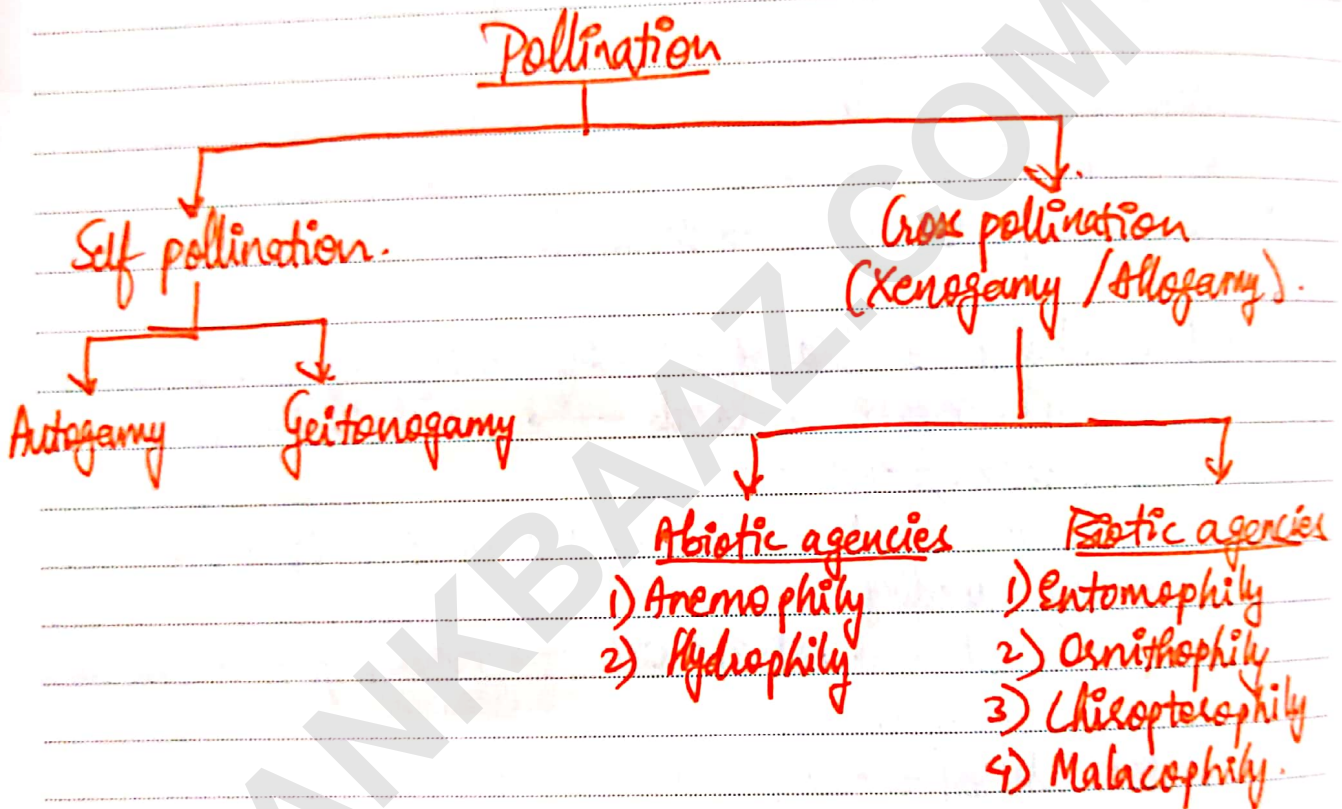 Pollination
Self pollination.
Cross pollination
(Xenogamy / Allogamy).
Autogamy
Geitonogamy
Abiotic agencies
1) Anemophily
2) Hydrophily
Biotic agencies
1) Entomophily
2) Ornithophily
3) Chiropterophily
4) Malacophily.
ANKBAAZ.COM